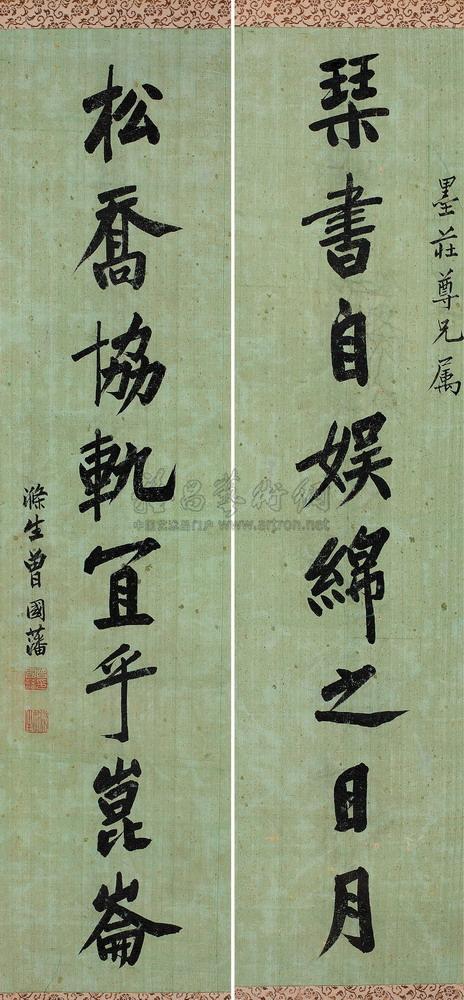 墨莊尊兄属
琹書自娱綿之日月
松喬協軌宜乎崑崙
滌生曾國藩
雅昌藝術網
中国艺术品门户 www.artron.net